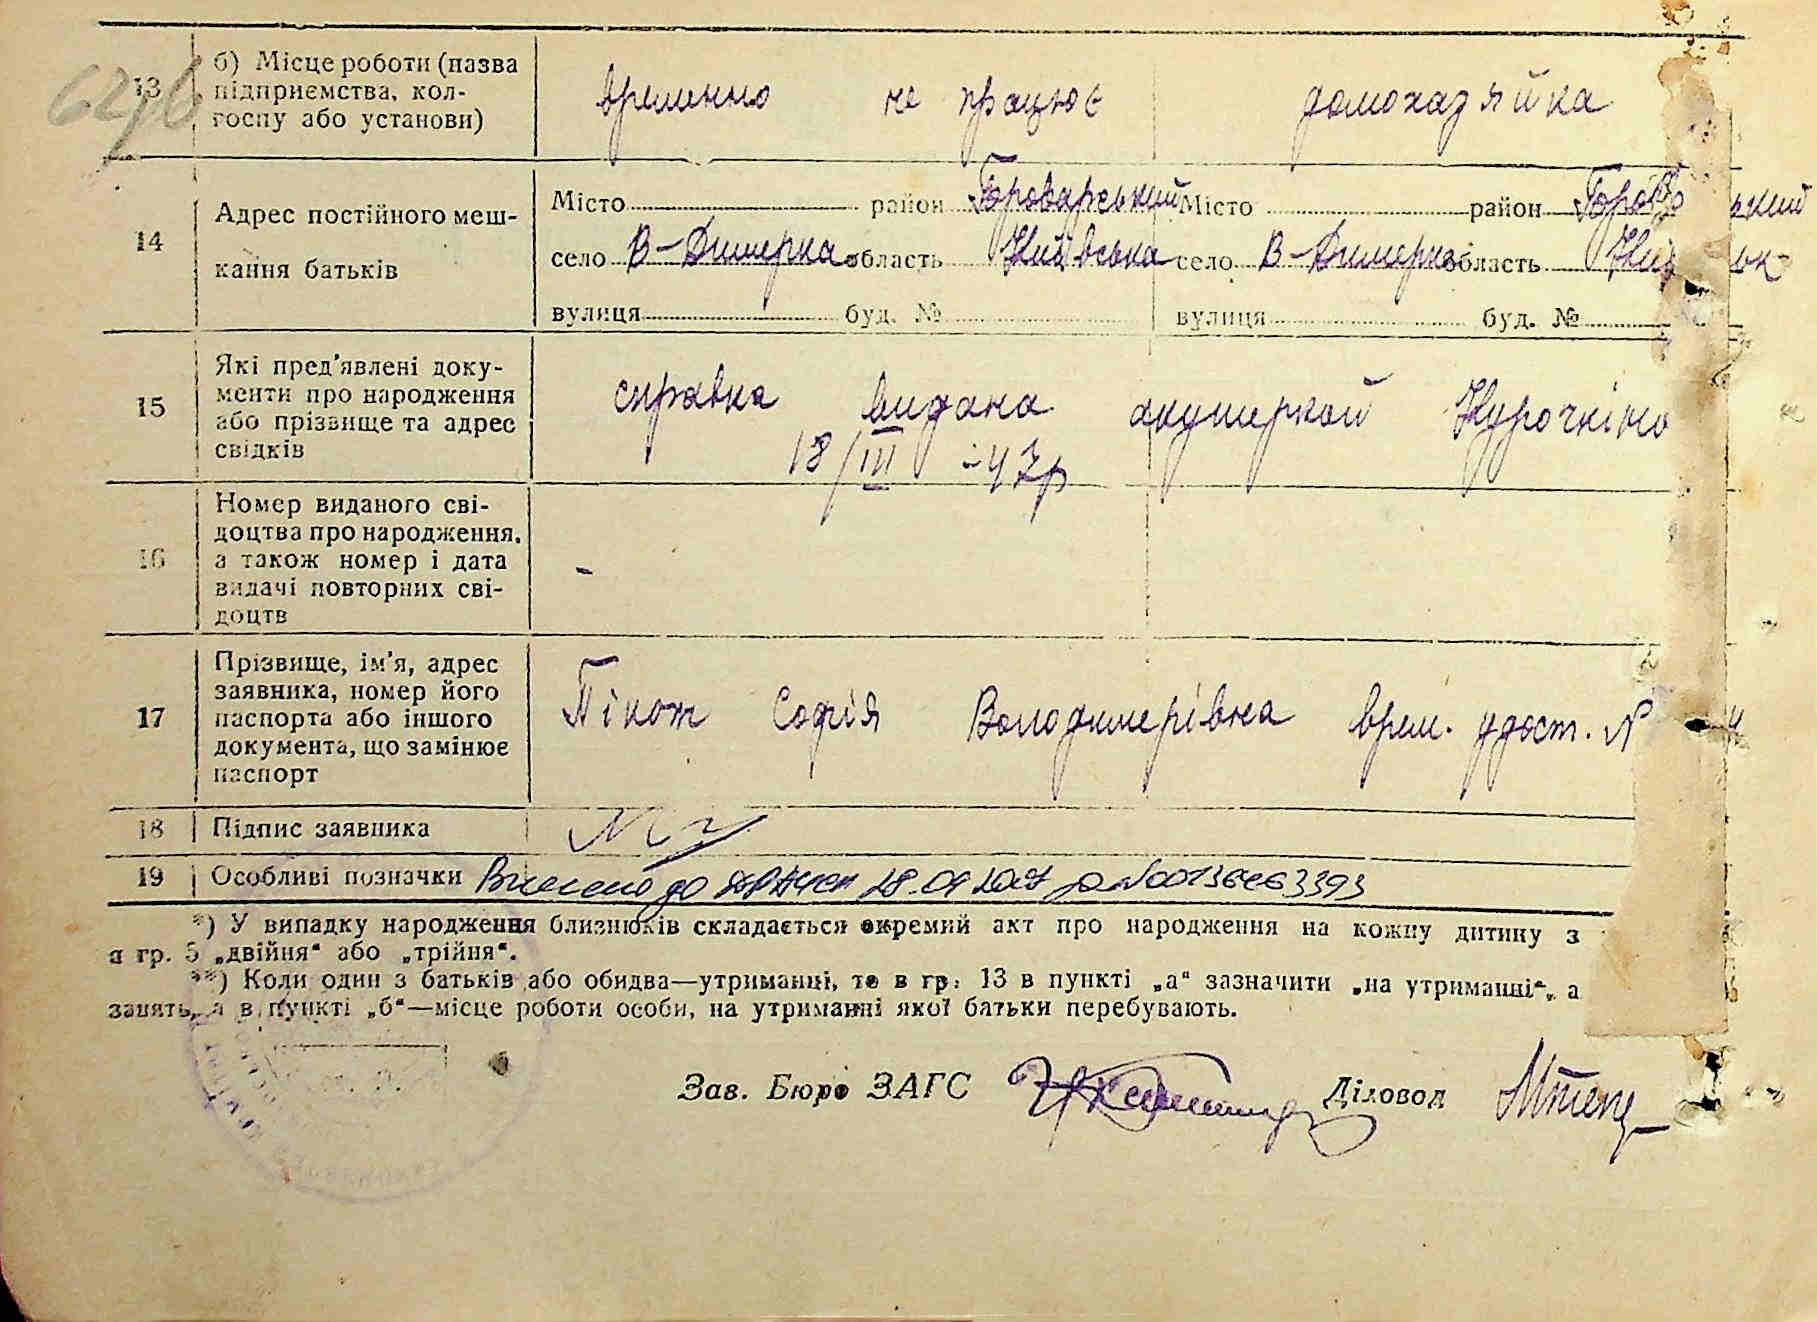 13 б) Місце роботи (назва підприємства, колгоспу або установи) временно не працює домохазяйка
14 Адрес постійного мешкання батьків
Місто район Броварський Місто район
село В-Димерка область Київська село В-Димерка область
вулиця буд. № вулиця буд. №
15 Які пред'явлені документи про народження або прізвище та адрес свідків справка видана акушеркой Курочкіно
18/III -47р
16 Номер виданого свідоцтва про народження, а також номер і дата видачі повторних свідоцтв -
17 Прізвище, ім'я, адрес заявника, номер його паспорта або іншого документа, що замінює паспорт Пікож Софія Володимерівна врем. удост. №
18 Підпис заявника
19 Особливі позначки Внесено до
*) У випадку народження близнюків складається окремий акт про народження на кожну дитину з
в гр. 5 „двійня“ або „трійня“.
**) Коли один з батьків або обидва—утриманці, то в гр. 13 в пункті „а“ зазначити „на утриманні“, а
занять, а в пункті „б“—місце роботи особи, на утриманні якої батьки перебувають.
Зав. Бюро ЗАГС Діловод